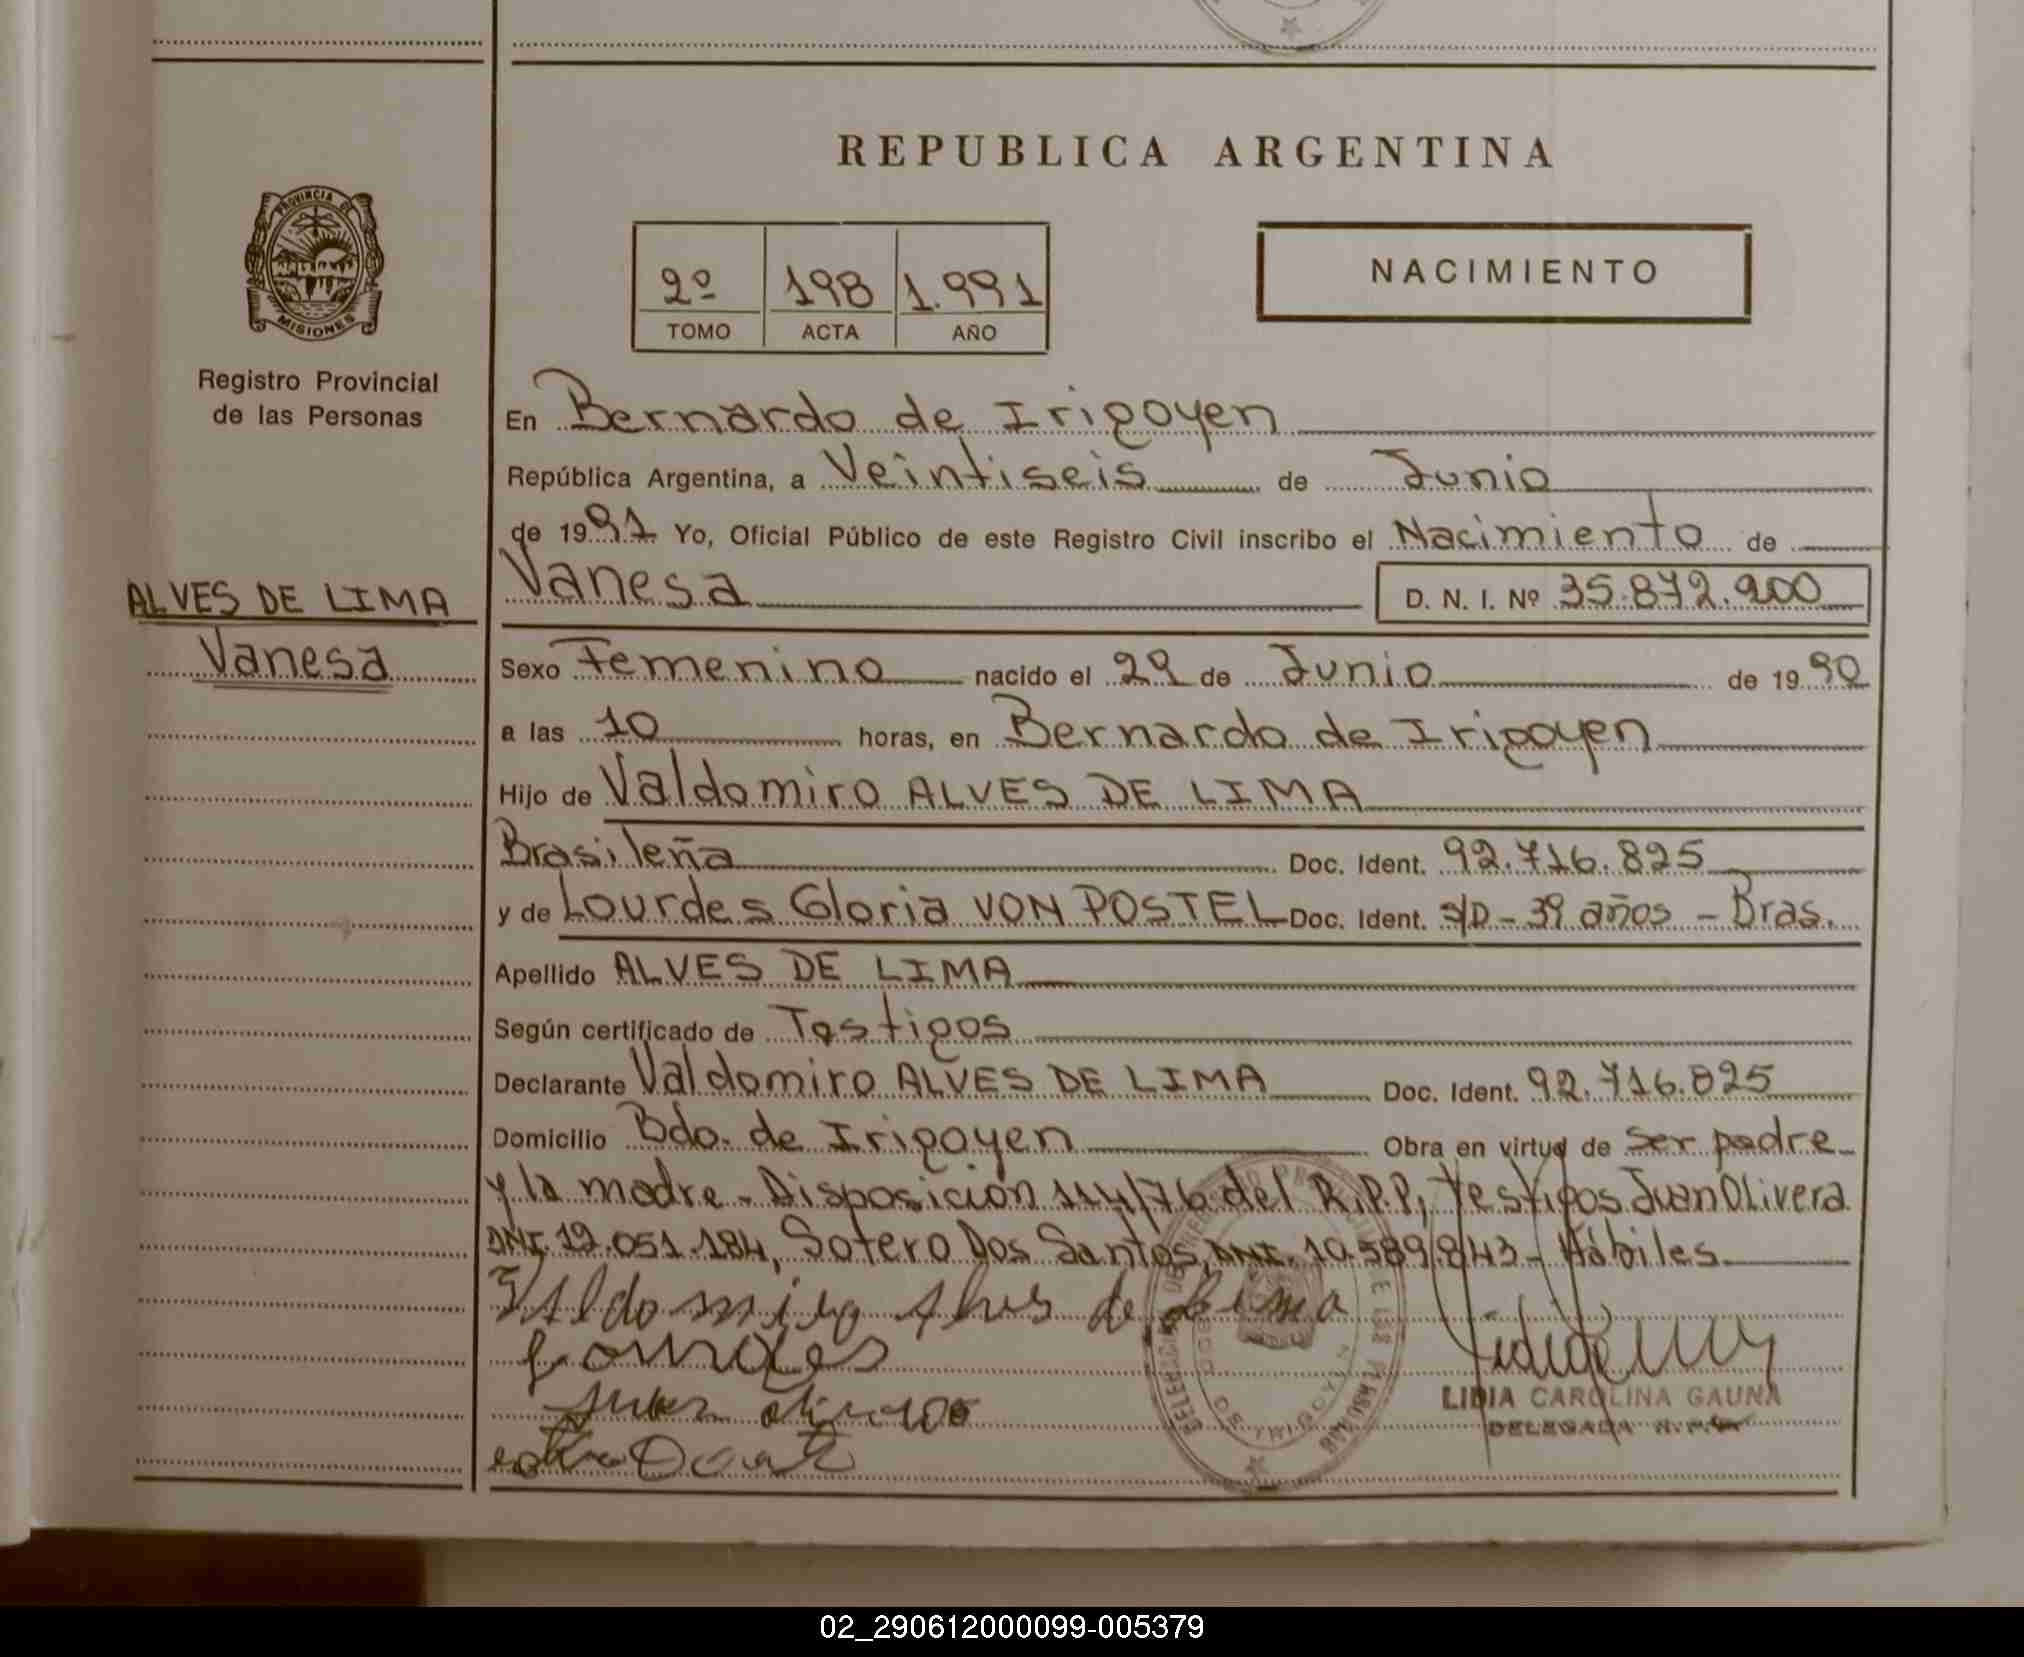 REPUBLICA ARGENTINA
PROVINCIA DE
MISIONES
Registro Provincial
de las Personas
2º 198 1.991
TOMO ACTA AÑO
NACIMIENTO
En Bernardo de Irigoyen
República Argentina, a Veintiseis de Junio
de 1991 Yo, Oficial Público de este Registro Civil inscribo el Nacimiento de
ALVES DE LIMA
Vanesa
Vanesa D. N. I. Nº 35.872.200
Sexo Femenino nacido el 29 de Junio de 1990
a las 10 horas, en Bernardo de Irigoyen
Hijo de Valdomiro ALVES DE LIMA
Brasileña Doc. Ident. 92.716.825
y de Lourdes Gloria VON POSTEL Doc. Ident. S/D - 39 años - Bras.
Apellido ALVES DE LIMA
Según certificado de Testigos
Declarante Valdomiro ALVES DE LIMA Doc. Ident. 92.716.825
Domicilio Bdo. de Irigoyen Obra en virtud de ser padre
y la madre - Disposición 114/76 del R.P.P, Testigos Juan Olivera
DNI. 12.051.184, Sotero Dos Santos, DNI. 10.589.843 - Hábiles
Valdomiro Alves de Lima
LIDIA CAROLINA GAUNA
DELEGADA
02_290612000099-005379